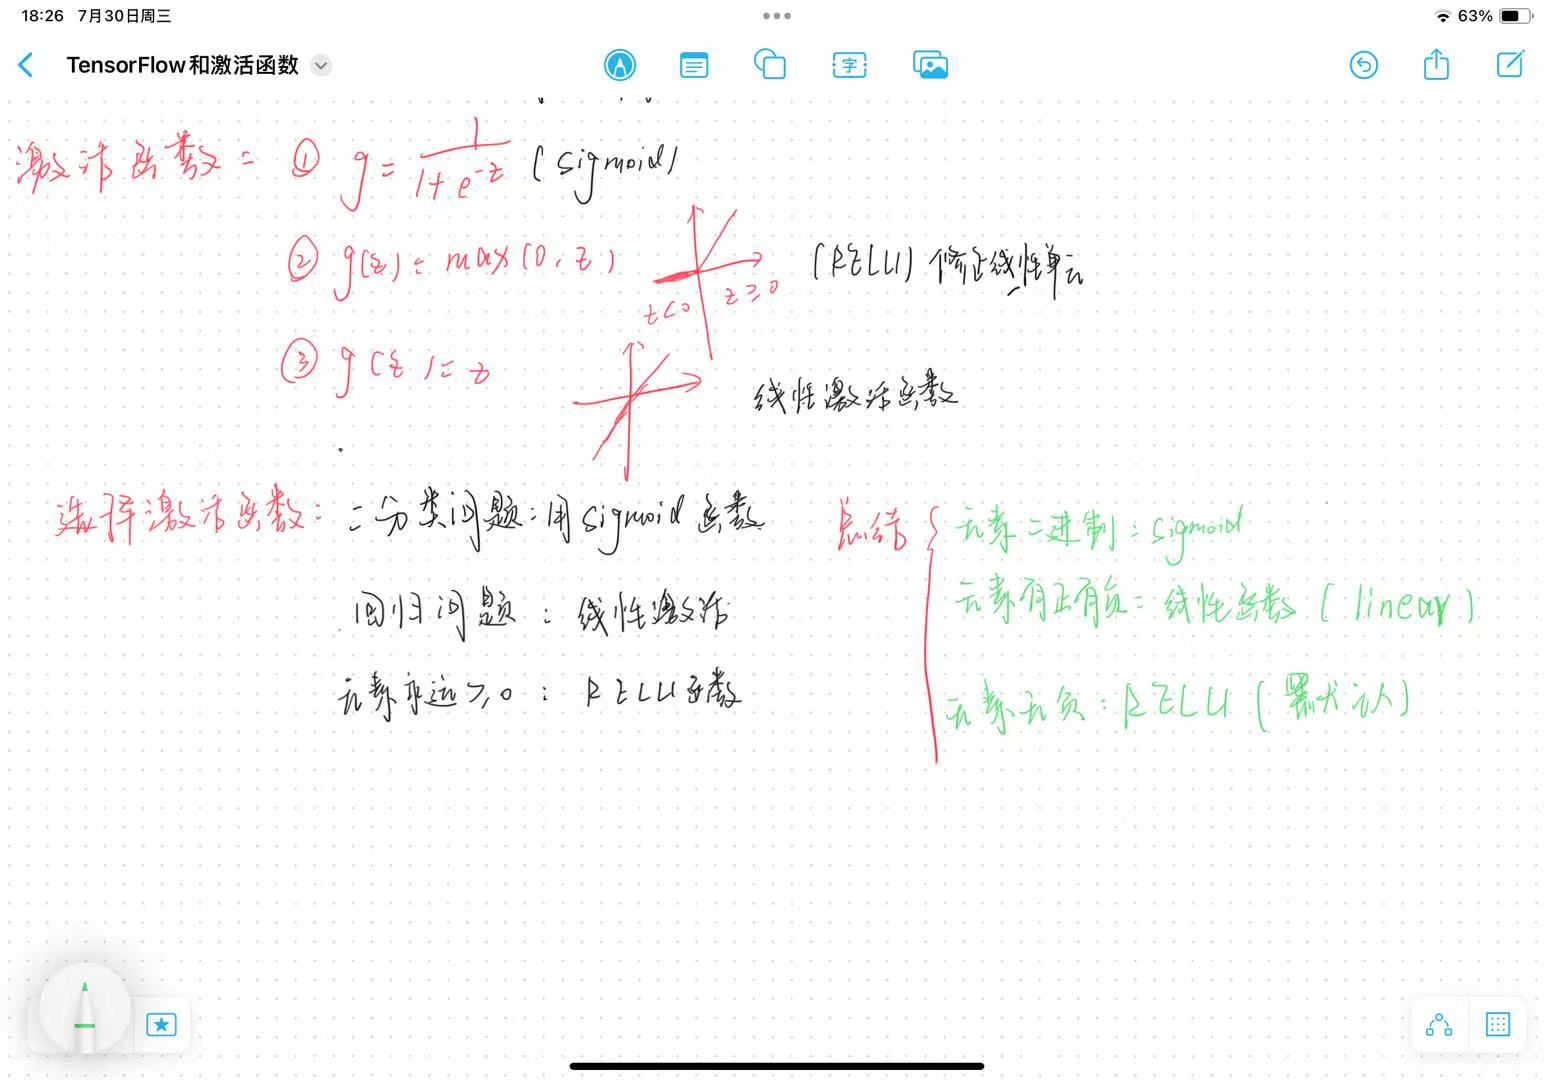 18:26 7月30日周三
63%
TensorFlow和激活函数
字
激活函数: ① g = 1/(1+e^-z) (sigmoid)
② g(z) = max(0, z) (RELU) 修正线性单元
z<0 z≥0
③ g(z) = z 线性激活函数
选择激活函数: 二分类问题:用sigmoid函数
回归问题:线性激活
元素永远≥0:RELU函数
总结
元素二进制:sigmoid
元素有正有负:线性函数(linear)
元素无负:RELU(默认)